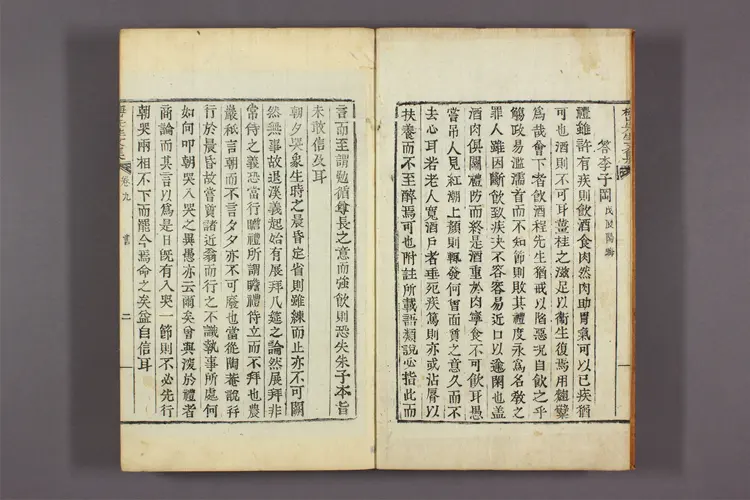 答李子岡
禮雖許有疾則飮酒食肉然肉助胃氣可以已疾猶
可也酒則不可耳薑桂之滋足以衞生復焉用麯糱
爲哉會下者飮酒程先生猶戒以陷惡况自飮之乎
觴政易濫濡首而不知節則敗其禮度永爲名敎之
罪人雖因斷飮致疾决不容易近口以逾閑也盖
酒肉俱關禮防而終是酒重於肉寧食不可飮耳愚
嘗吊人見紅潮上顔則輒發何冒面質之意久而不
去心耳若老人寬酒戶者垂死疾篤則亦或沾脣以
扶養而不至醉焉可也附註所載語類說必指此而
言而至謂勉循尊長之意而強飮則恐失朱子本旨
未敢信及耳
朝夕哭象生時之晨昏定省則雖練而止亦不可闕
然無事故退溪義起始有展拜几筵之論然展拜非
常侍之義恐當行瞻禮所謂瞻禮侍立而不拜也農
巖秪言朝而不言夕夕亦不可廢也當從陶菴說幷
行於晨昏故嘗質諸近翁而行之不識執事所處何
如何叩朝哭入哭之異愚亦云爾矣曾與渼於禮者
商論而其言以爲是日旣有入哭一節則不必先行
朝哭兩相不下而罷今焉命之矣益自信耳
卷九
書
二